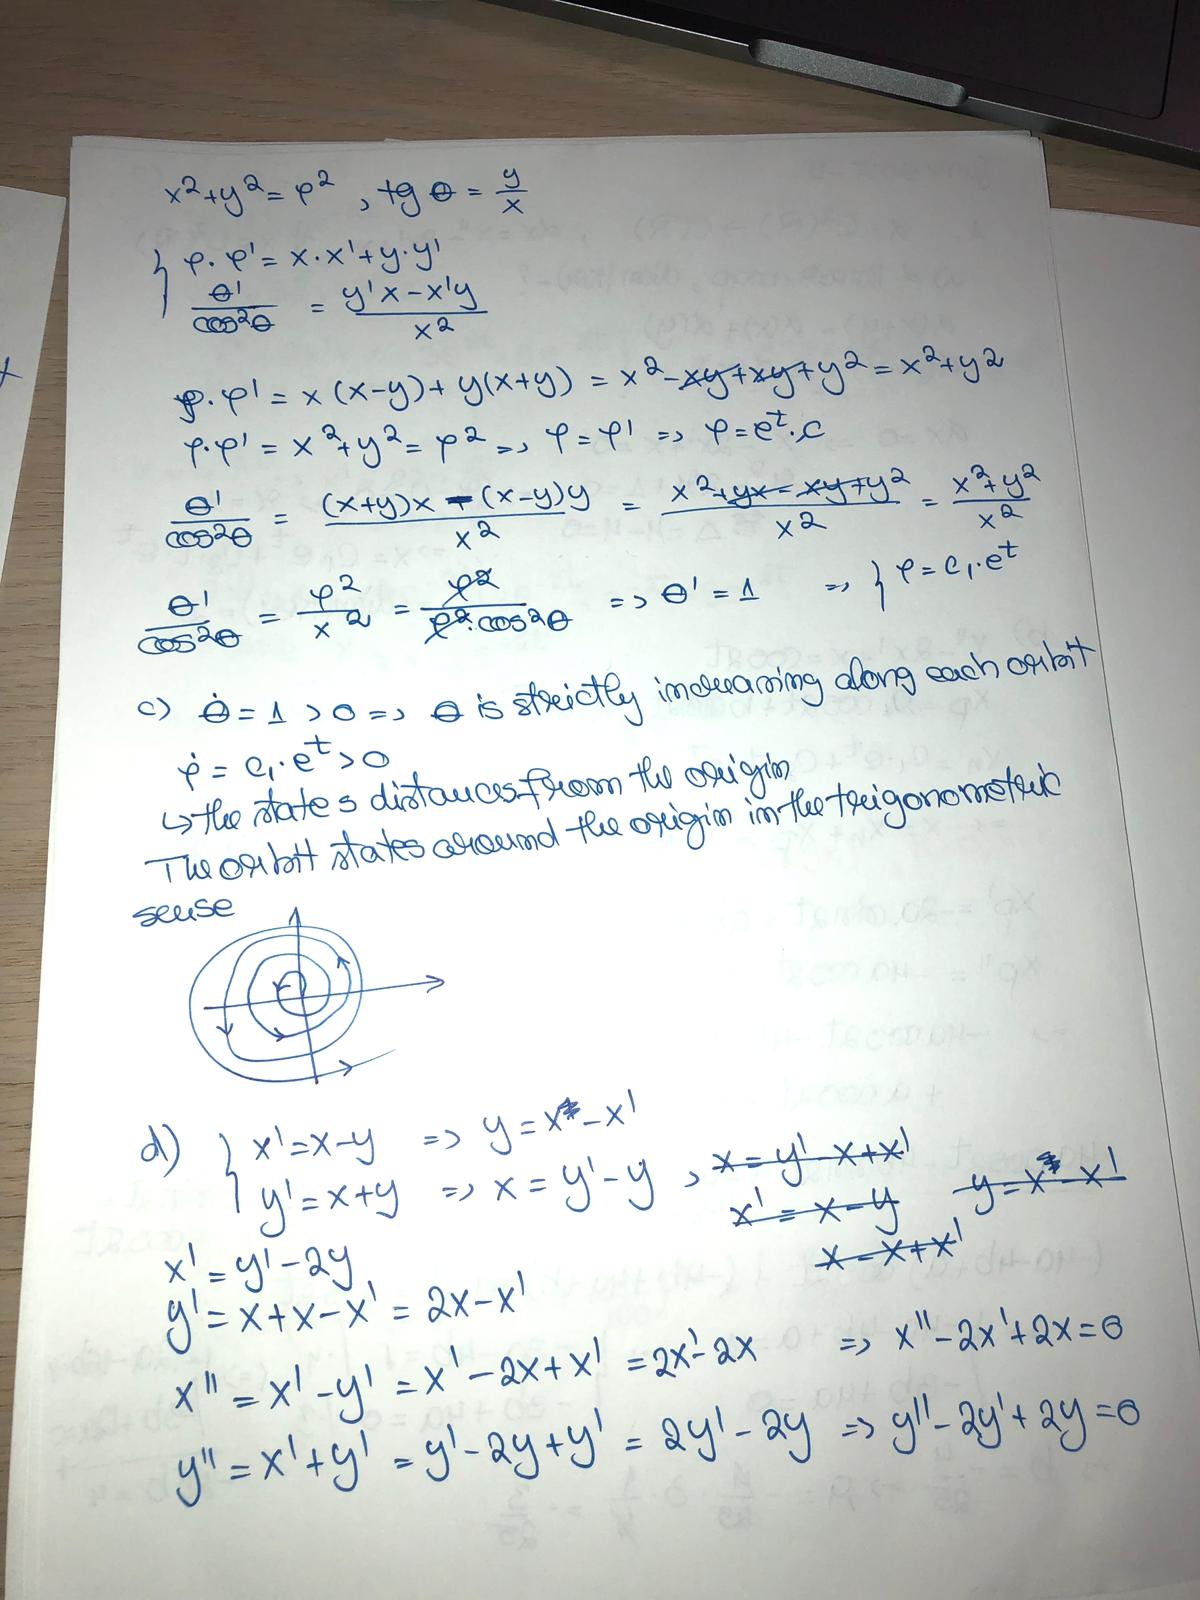 x²+y²=ρ², tg θ = y/x
{ ρ·ρ' = x·x'+y·y'
θ'/cos²θ = (y'x-x'y)/x²
ρ·ρ' = x(x-y)+y(x+y) = x²-xy+xy+y² = x²+y²
ρ·ρ' = x²+y² = ρ² => ρ=ρ' => ρ=eᵗ·c
θ'/cos²θ = ((x+y)x - (x-y)y)/x² = (x²+yx-xy+y²)/x² = (x²+y²)/x²
θ'/cos²θ = ρ²/x² = ρ²/(ρ²·cos²θ) => θ'=1 => { ρ=c₁·eᵗ
c) θ̇=1>0 => θ is strictly increasing along each orbit
ρ̇ = c₁·eᵗ>0
↳ the states distances from the origin
The orbit states around the origin in the trigonometric
sense
d) { x'=x-y => y=x-x'
y'=x+y => x=y'-y, x=y'-x+x'
x'=x-y y=x-x'
x-x+x'
x'=y'-2y
y'=x+x-x'=2x-x'
x''=x'-y'=x'-2x+x'=2x'-2x => x''-2x'+2x=0
y''=x'+y'=y'-2y+y'=2y'-2y => y''-2y'+2y=0